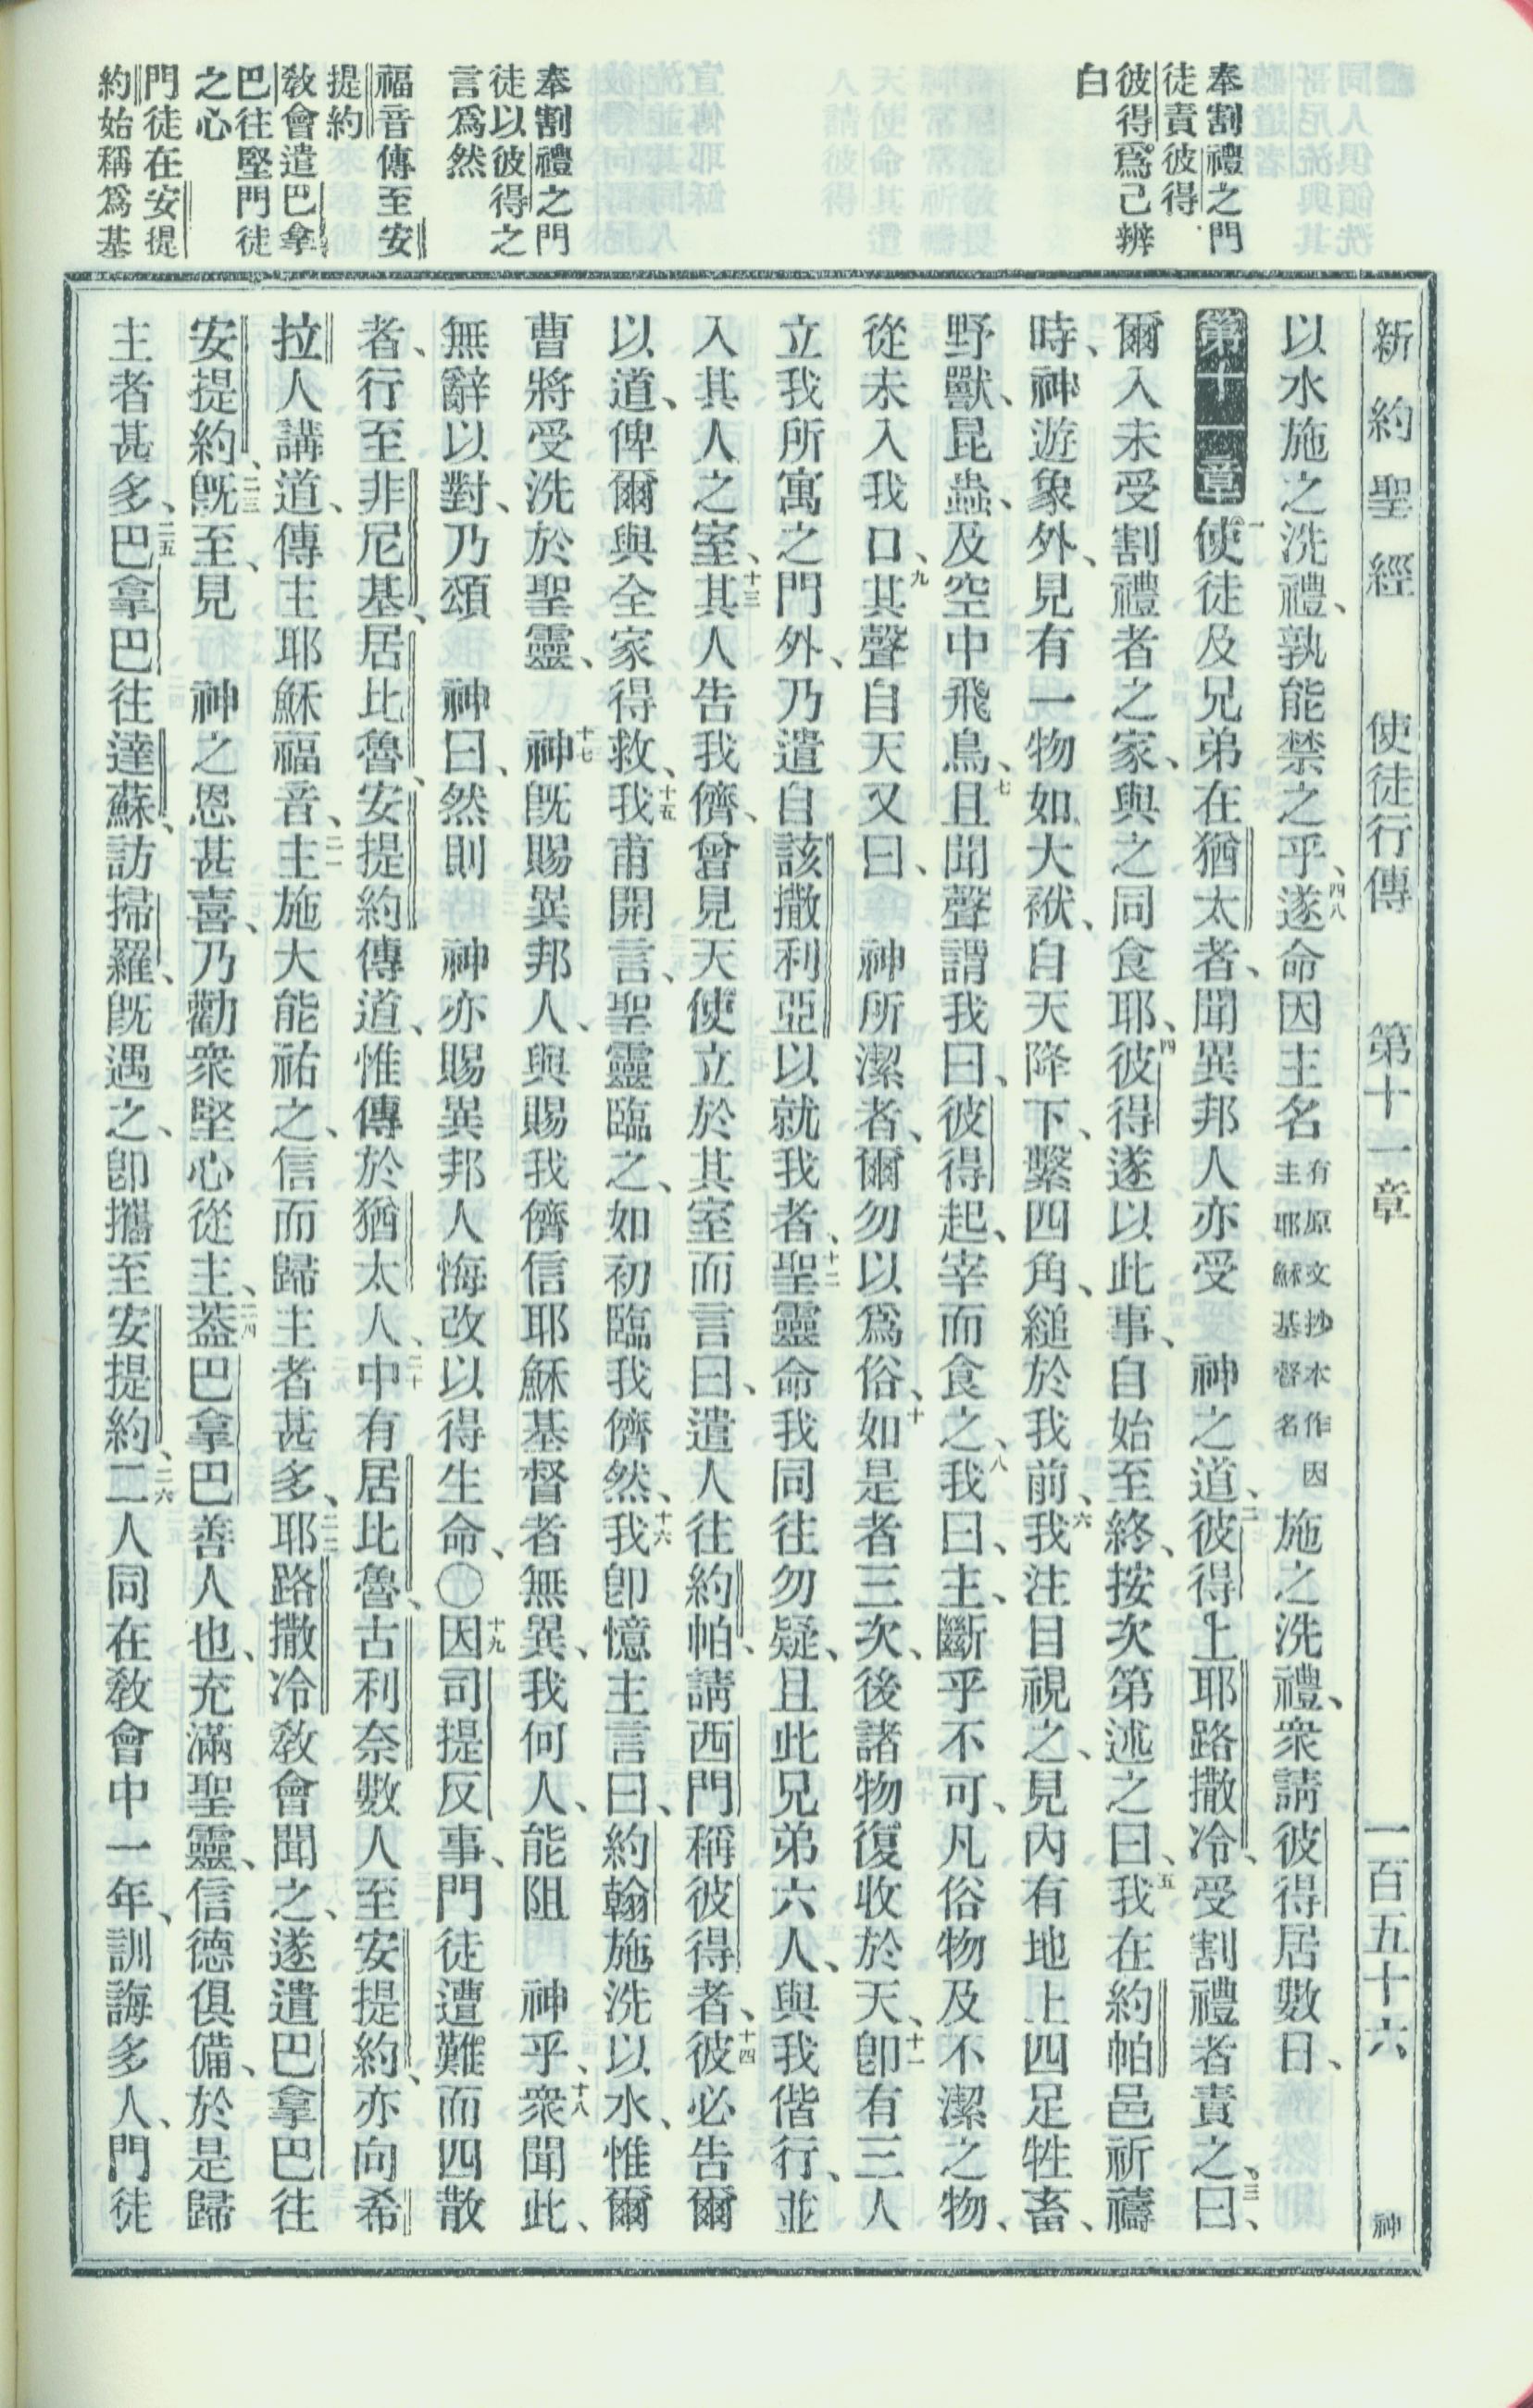 新約聖經　使徒行傳　第十一章　一百五十六　神
奉割禮之門
徒責彼得
彼得爲己辨
白
奉割禮之門
徒以彼得之
言爲然
福音傳至安
提約
敎會遣巴拿
巴往堅門徒
之心
門徒在安提
約始稱爲基
以水施之洗禮、孰能禁之乎、四八遂命因主名有原文抄本作因主耶穌基督名施之洗禮、衆請彼得居數日、
第十一章 一使徒及兄弟在猶太者、聞異邦人亦受　神之道、二彼得上耶路撒冷、受割禮者責之、三曰、
爾入未受割禮者之家、與之同食耶、四彼得遂以此事、自始至終、按次第述之曰、五我在約帕邑祈禱
時、神遊象外、見有一物如大袱、自天降下、繫四角、縋於我前、六我注目視之、見內有地上四足牲畜、
野獸、昆蟲、及空中飛鳥、七且聞聲謂我曰、彼得起、宰而食之、八我曰、主、斷乎不可、凡俗物及不潔之物、
從未入我口、九其聲自天又曰、　神所潔者、爾勿以爲俗、十如是者三次、後諸物復收於天、十一卽有三人
立我所寓之門外、乃遣自該撒利亞以就我者、十二聖靈命我同往勿疑、且此兄弟六人、與我偕行、並
入其人之室、十三其人告我儕、曾見天使立於其室而言曰、遣人往約帕、請西門稱彼得者、十四彼必告爾
以道、俾爾與全家得救、十五我甫開言、聖靈臨之、如初臨我儕然、十六我卽憶主言曰、約翰施洗以水、惟爾
曹將受洗於聖靈、十七　神旣賜異邦人、與賜我儕信耶穌基督者無異、我何人、能阻　神乎、十八衆聞此、
無辭以對、乃頌　神曰、然則　神亦賜異邦人悔改以得生命、〇十九因司提反事、門徒遭難而四散
者、行至非尼基、居比魯、安提約傳道、惟傳於猶太人、二十中有居比魯、古利奈數人、至安提約、亦向希
拉人講道、傳主耶穌福音、二一主施大能祐之、信而歸主者甚多、二二耶路撒冷敎會聞之、遂遣巴拿巴往
安提約、二三旣至、見　神之恩甚喜、乃勸衆堅心從主、二四葢巴拿巴善人也、充滿聖靈、信德俱備、於是歸
主者甚多、二五巴拿巴往達蘇、訪掃羅、旣遇之、卽攜至安提約、二六二人同在敎會中一年、訓誨多人、門徒